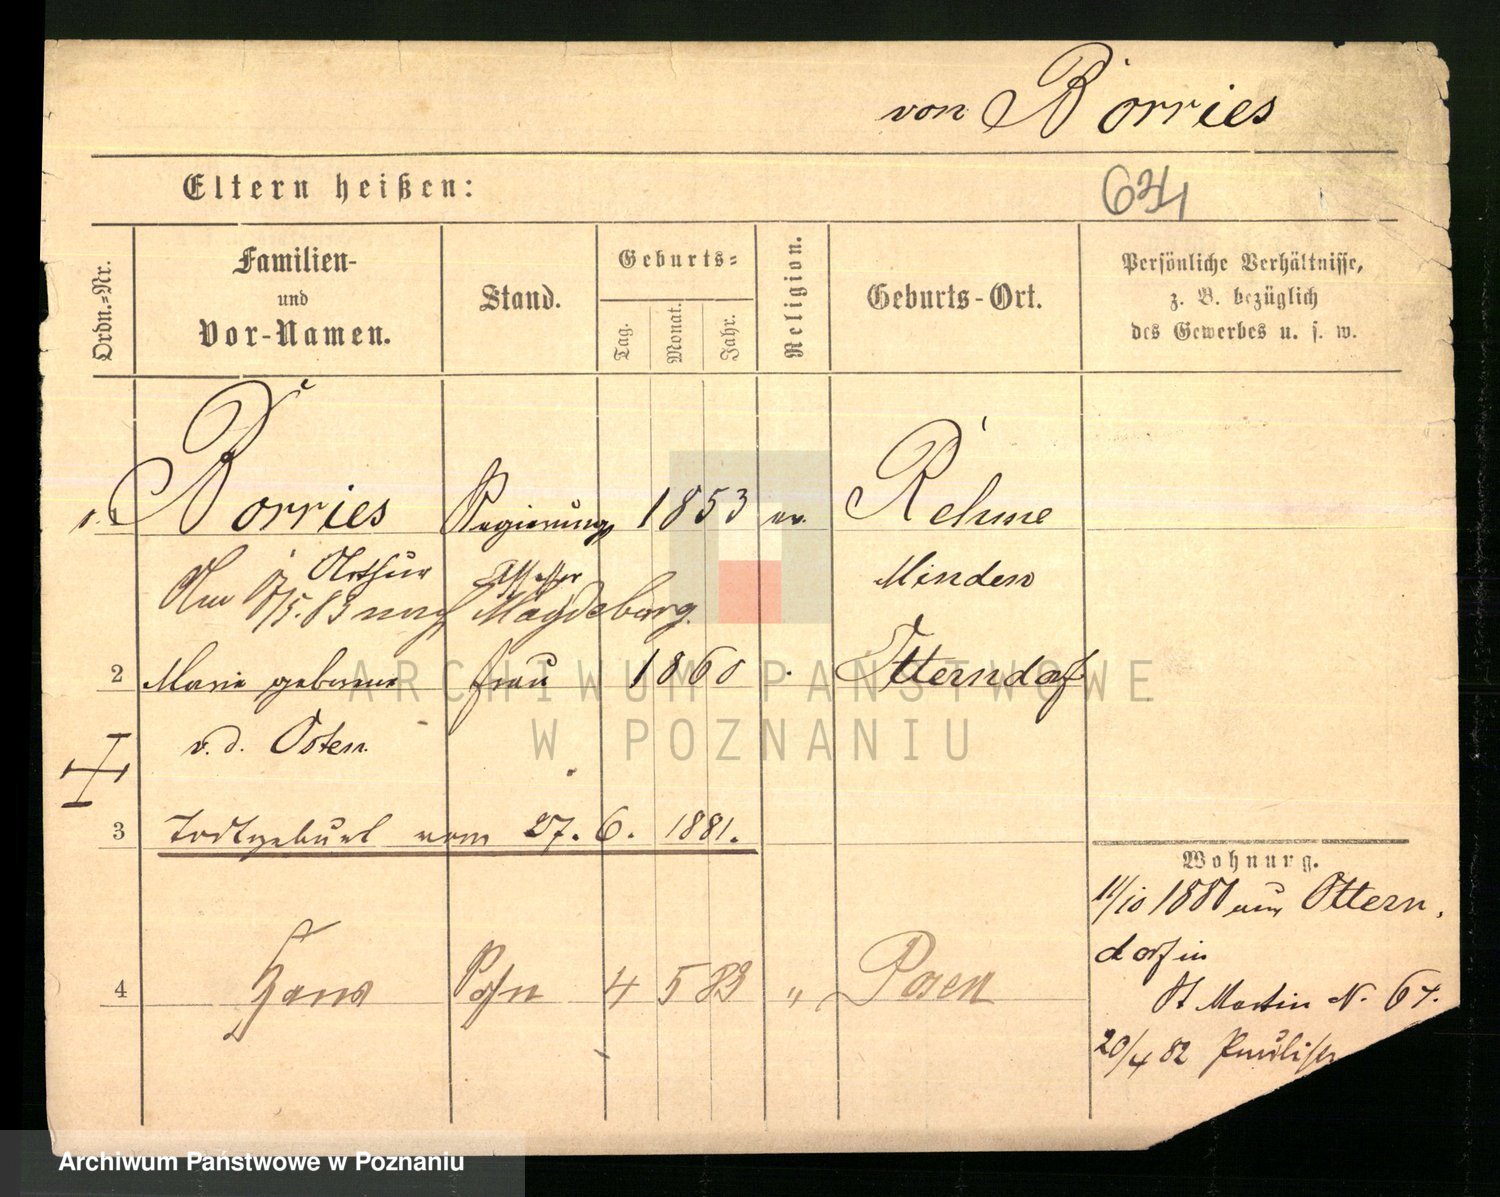 von Borries
Eltern heißen:
634
Ordn.-Nr.
Familien-
und
Vor-Namen.
Stand.
Geburts-
Tag.
Monat.
Jahr.
Religion.
Geburts-Ort.
Persönliche Verhältnisse,
z. B. bezüglich
des Gewerbes u. s. w.
1. v. Borries Regierungs 1853 ev. Rehme
Arthur Assessor Minden
Am 8/5. 83 nach Magdeburg.
2 Marie geborene Frau 1860 Otterndorf
v. d. Osten
3 Todtgeburt vom 27. 6. 1881.
Wohnung.
11/10 1880 aus Ottern,
dorf in
4 Hans Sohn 4 5 83 " Posen
St Martin N. 67.
20/4 82
ARCHIWUM PAŃSTWOWE
W POZNANIU
Archiwum Państwowe w Poznaniu